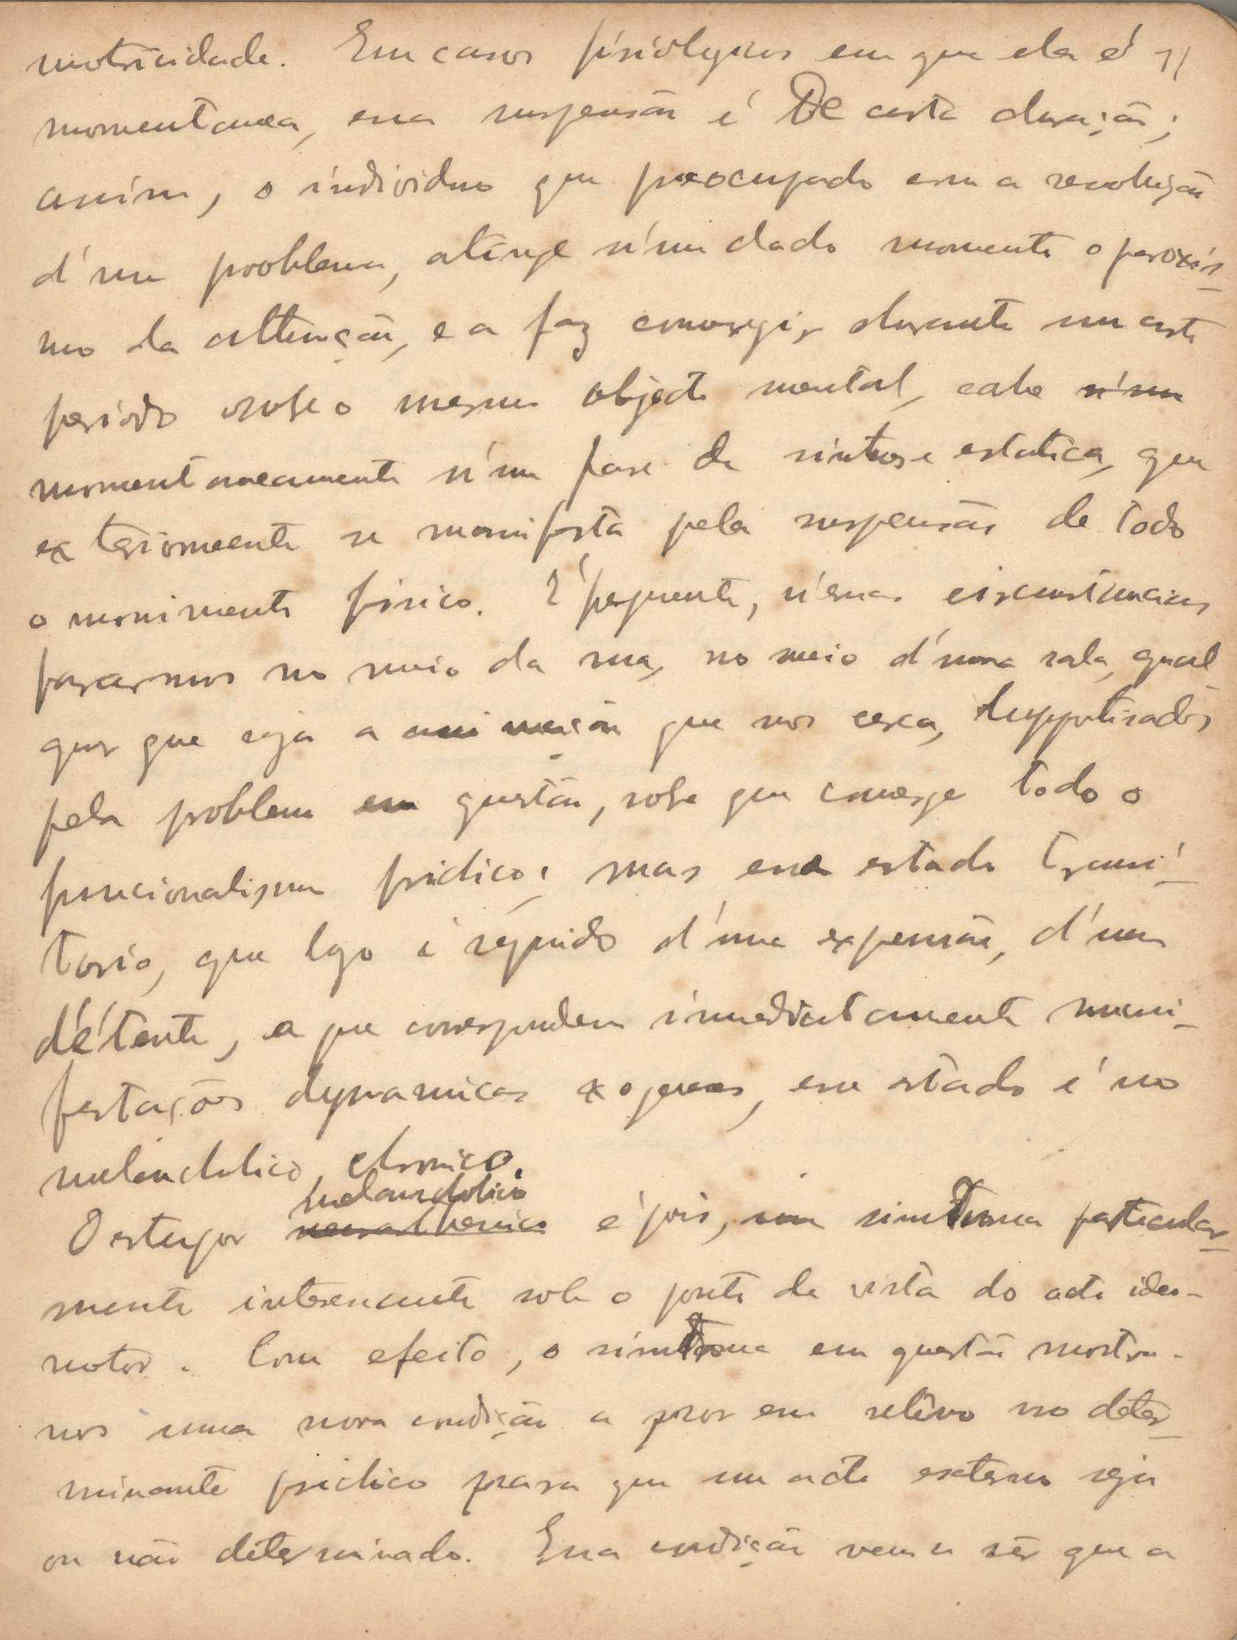 motricidade. Em casos fisiologicos em que ela é 71
momentanea, essa suspensão é De certa duração;
assim, o individuo que preocupado com a resolução
d'um problema, atinge n'um dado momento o paroxis-
mo da attenção, e a faz convergir durante um certo
periodo sobre o mesmo objecto mental, cahe n'um
momentaneamente n'um fase de sintese estatica, que
exteriormente se manifesta pela suspensão de todo
o movimento fisico. É frequente, n'essas circunstancias
pararmos no meio da rua, no meio d'uma sala, qual
quer que seja a animação que nos cerca, hyppotisados
pela problema em questão, sobre que converge todo o
funcionalismo psichico; mas esse estado transi-
torio, que logo é seguido d'uma expansão, d'uma
détente, a que correspondem immediatamente mani-
festações dynamicas exogenas, esse estado é no
melancholico, chronico.
melancholico
O estupor neurasthenico é pois, um simtoma particular-
mente interessante sob o ponto de vista do acto ideo-
motor. Com efeito, o simtoma em questão mostra-
nos uma nova condição a pôr em relêvo no deter-
minante psichico para que um acto externo seja
ou não determinado. Essa condição vem a sêr que a